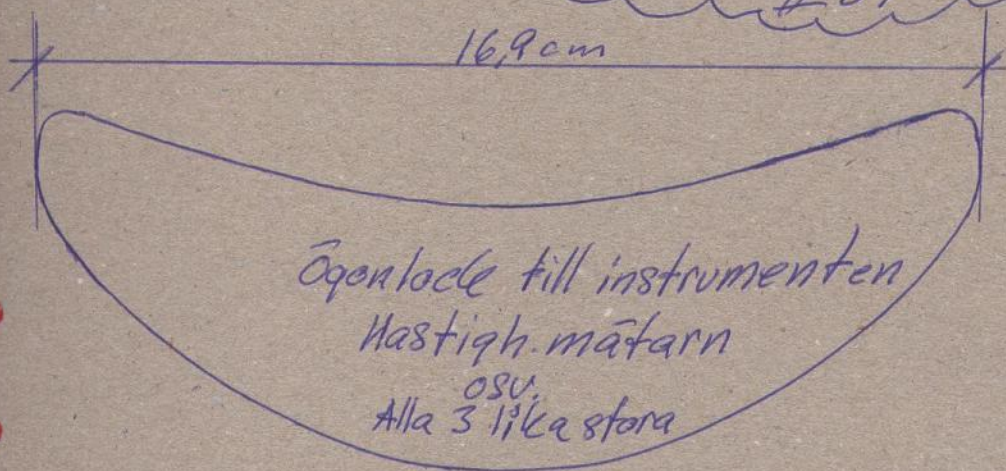 16,9cm
Ögonlock till instrumenten
Hastigh.mätarn
osv.
Alla 3 lika stora